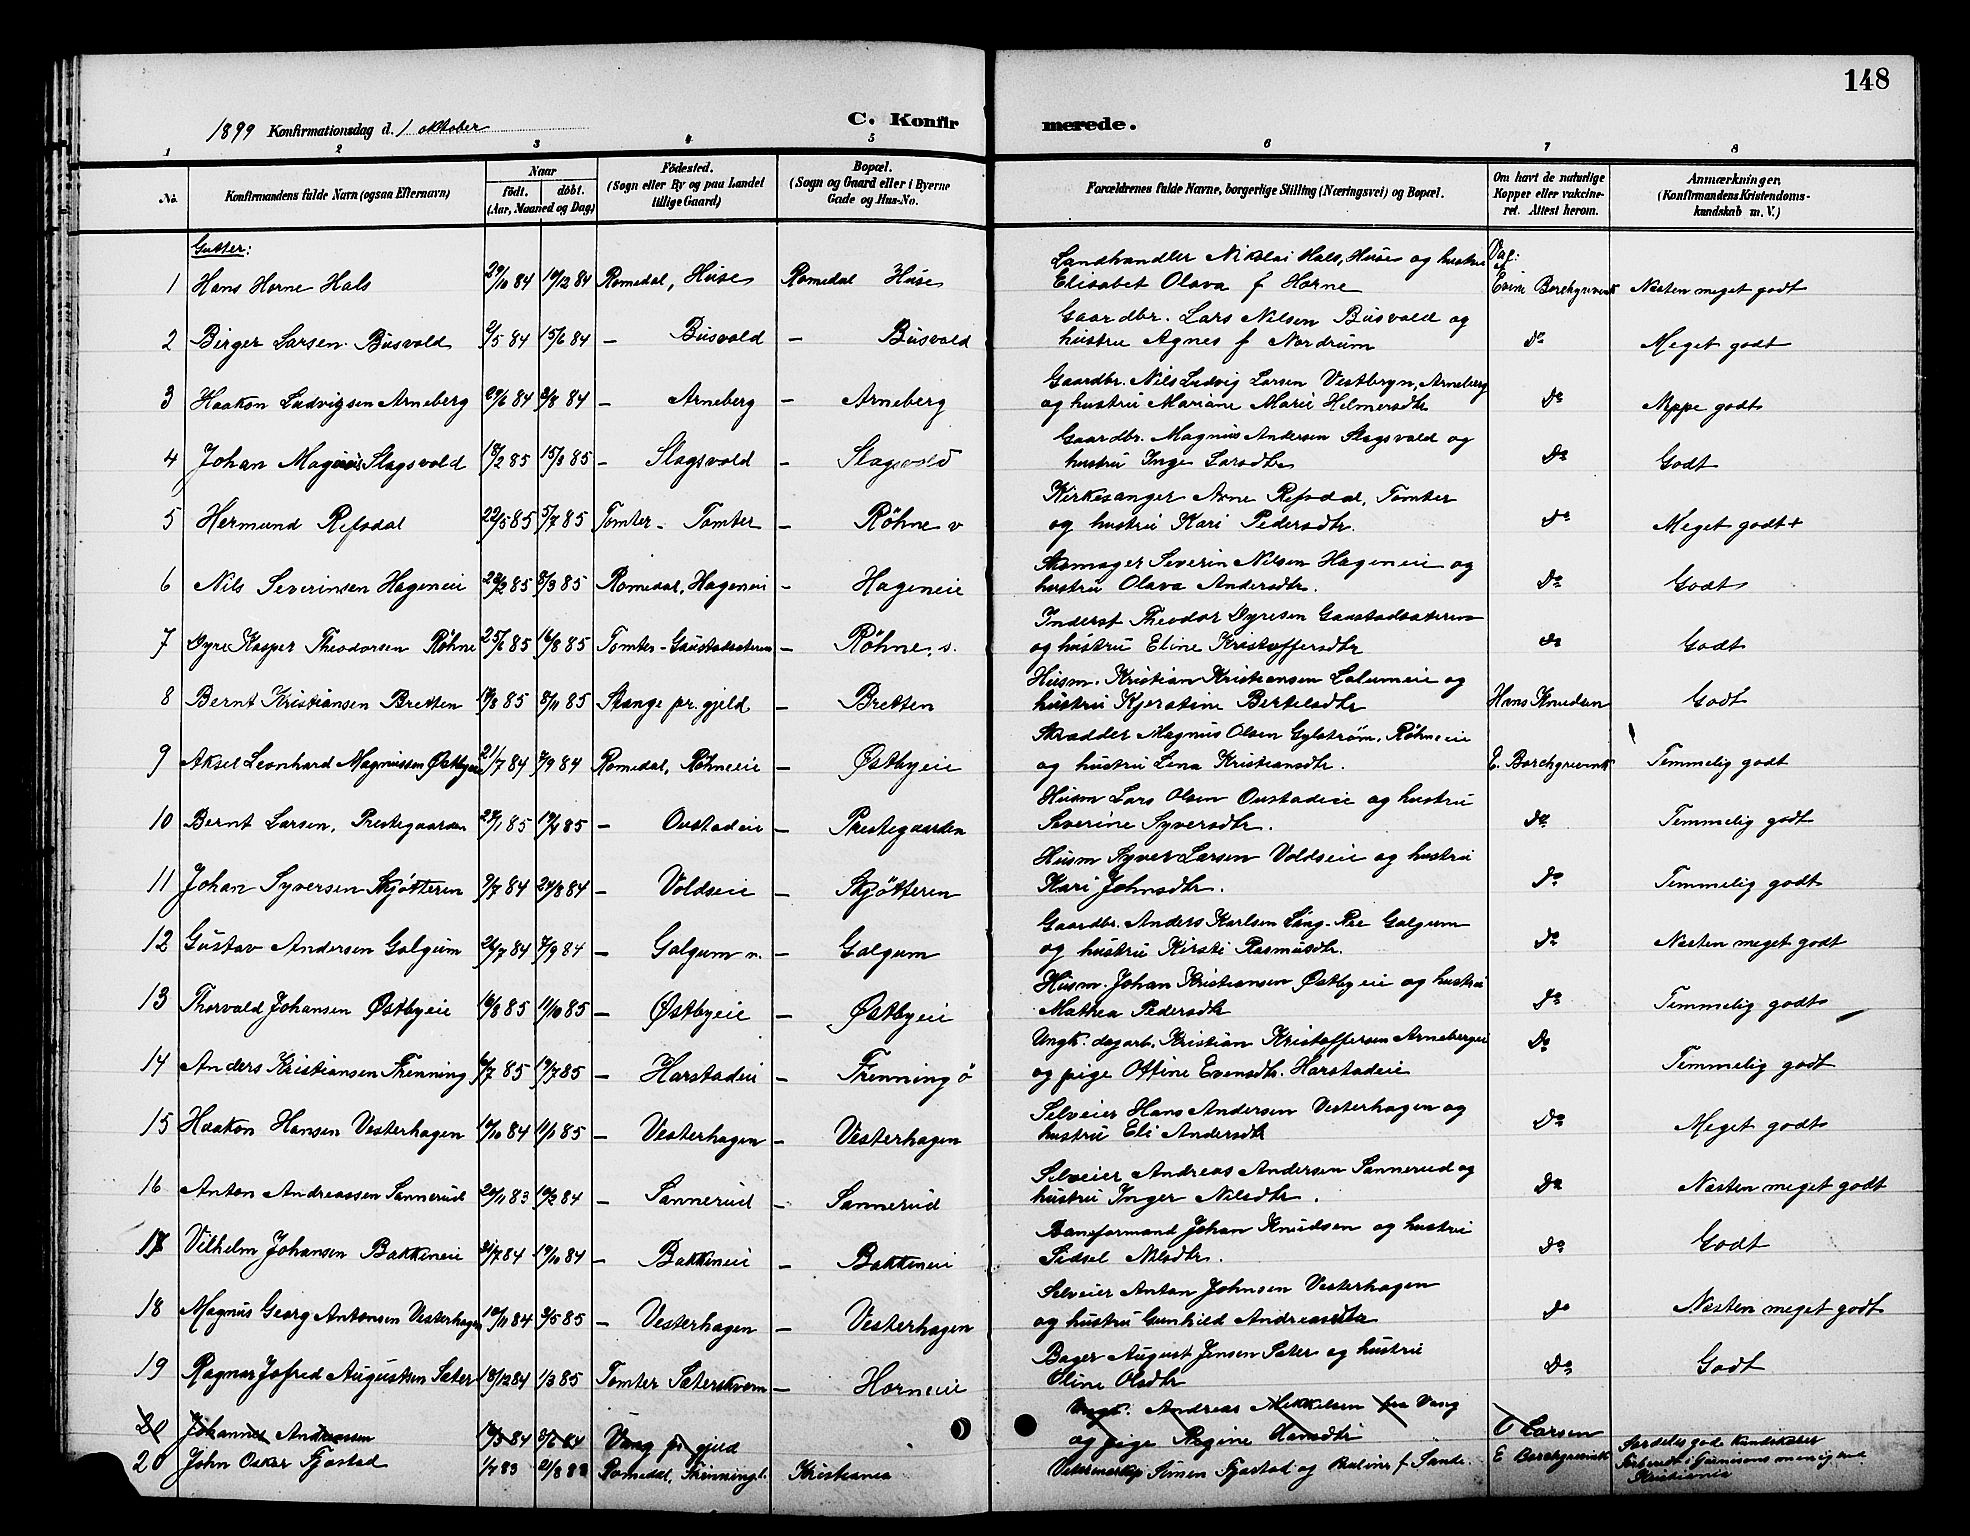 148
1899 Konfirmationsdag d. 1 oktober
C. Konfirmerede.
1 2 3 4 5 6 7 8
No.
Konfirmandens fulde Navn (ogsaa Efternavn)
Naar
födt. döbt.
(Aar, Maaned og Dag)
Födested.
(Sogn eller By og paa Landet
tillige Gaard)
Bopæl.
(Sogn og Gaard eller i Byerne
Gade og Hus-No.
Forældrenes fulde Navne, borgerlige Stilling (Næringsvei) og Bopæl.
Om havt de naturlige
Kopper eller vakcine-
ret. Attest herom.
Anmærkninger,
(Konfirmandens Kristendoms-
kundskab m. V.)
Gutter:
Landhandler Nikolai Hals, Huse og hustru Vaf:
1 Hans Horne Hals 29/10 84 10/12 84 Romedal, Huse Romedal Huse Elisabet Olava f Horne Nesten meget godt
Gaardbr. Lars Nilsen Busvold og
2 Birger Larsen Busvold 9/5 84 15/6 84 – Busvold – Busvold hustru Agnes f Nordrum Do Meget godt
Gaardbr. Nils Ludvig Larsen Vestbryn, Arneberg
3 Haakon Ludvigsen Arneberg 29/6 84 3/8 84 – Arneberg – Arneberg og hustru Mariane Marie Helmersdtr Do Neppe godt
Gaardbr. Magnus Andersen Slagsvold og
4 Johan Magnus Slagsvold 10/2 85 15/3 85 – Slagsvold – Slagsvold hustru Inge Larsdtr Do Godt
Kirkesanger Arne Refsdal, Tomter
5 Hermund Refsdal 22/5 85 5/7 85 Tomter – Tomter – Röhne v og hustru Kari Pedersdtr. Do Meget godt+
Skomager Severin Nilsen Hageneie og
6 Nils Severinsen Hageneie 22/2 85 8/3 85 Romedal, Hageneie – Hageneie hustru Olava Andersdtr. Do Godt
Inderst Theodor Dyresen Gaustadsæteren
7 Dyre Kasper Theodorsen Röhne 25/6 85 16/8 85 Tomter – Gaustadsæteren – Röhne, s. og hustru Eline Kristoffersdtr Do Godt
Husm. Kristian Kristiansen Lalumeie og
8 Bernt Kristiansen Bretten 19/8 85 8/11 85 Stange pr.gjeld – Bretten hustru Kjerstine Bertelsdtr Hans Knudsen Godt
Skrædder Magnus Olsen Gylstrøm, Röhneeie
9 Aksel Leonhard Magnussen Østbyeie 21/7 84 7/9 84 Romedal, Röhneeie – Østbyeie og hustru Lena Kristiansdtr. E. Borchgrevink Temmelig godt
Husm Lars Olsen Oustadeie og hustru
10 Bernt Larsen, Prestegaarden 27/1 85 19/4 85 – Oustadeie – Prestegaarden Severine Syversdtr. Do Temmelig godt
Husm Syver Larsen Voldseie og hustru
11 Johan Syversen Skjötteren 9/7 84 24/8 84 – Voldseie – Skjötteren Kari Johnsdtr. Do Temmelig godt
Gaardbr. Anders Karlsen Ling-Ree Galgum
12 Gustav Andersen Galgum 24/7 84 7/9 84 – Galgum n. – Galgum og hustru Kirsti Rasmusdtr. Do Nesten meget godt
Husm. Johan Kristiansen Østbyeie og hustru
13 Thorvald Johansen Østbyeie 16/8 85 11/10 85 – Østbyeie – Østbyeie Mathea Pedersdtr Do Temmelig godt
Ungk. dagarb. Kristian Kristoffersen Arnebergeie
14 Anders Kristiansen Frenning 6/7 85 19/7 85 – Harstadeie – Frenning ö og pige Ottine Evensdtr. Harstadeie Do Temmelig godt
Selveier Hans Andersen Vesterhagen og
15 Haakon Hansen Vesterhagen 19/10 84 11/1 85 – Vesterhagen – Vesterhagen hustru Eli Andersdtr Do Meget godt
Selveier Andreas Andersen Sannerud og
16 Anton Andreassen Sannerud 29/11 83 10/2 84 – Sannerud – Sannerud hustru Inger Nilsdtr. Do Nesten meget godt
Baneformand Johan Knudsen og hustru
17 Vilhelm Johansen Bakkeneie 31/7 84 19/10 84 – Bakkeneie – Bakkeneie Sidsel Nilsdtr. Do Godt
Selveier Anton Johnsen Vesterhagen
18 Magnus Georg Antonsen Vesterhagen 10/11 84 3/5 85 – Vesterhagen – Vesterhagen og hustru Gunhild Andreasdtr Do Nesten meget godt
Bager August Jensen Sæter og hustru
19 Ragnar Jofred Augustsen Sæter 18/12 84 1/3 85 Tomter Sæterskvern – Horneie Eline Olsdtr Do Godt
Ungk. Andreas Mikkelsen fra Vang
20 Johannes Andreassen Vang pr gjeld og pige Regine Hansdtr Larsen
20 John Oskar Fjæstad Romedal, Frenning Kristiania Simen Fjæstad og f. Sande E Borchgrevink
Særdeles god kundskaber
Kristiania